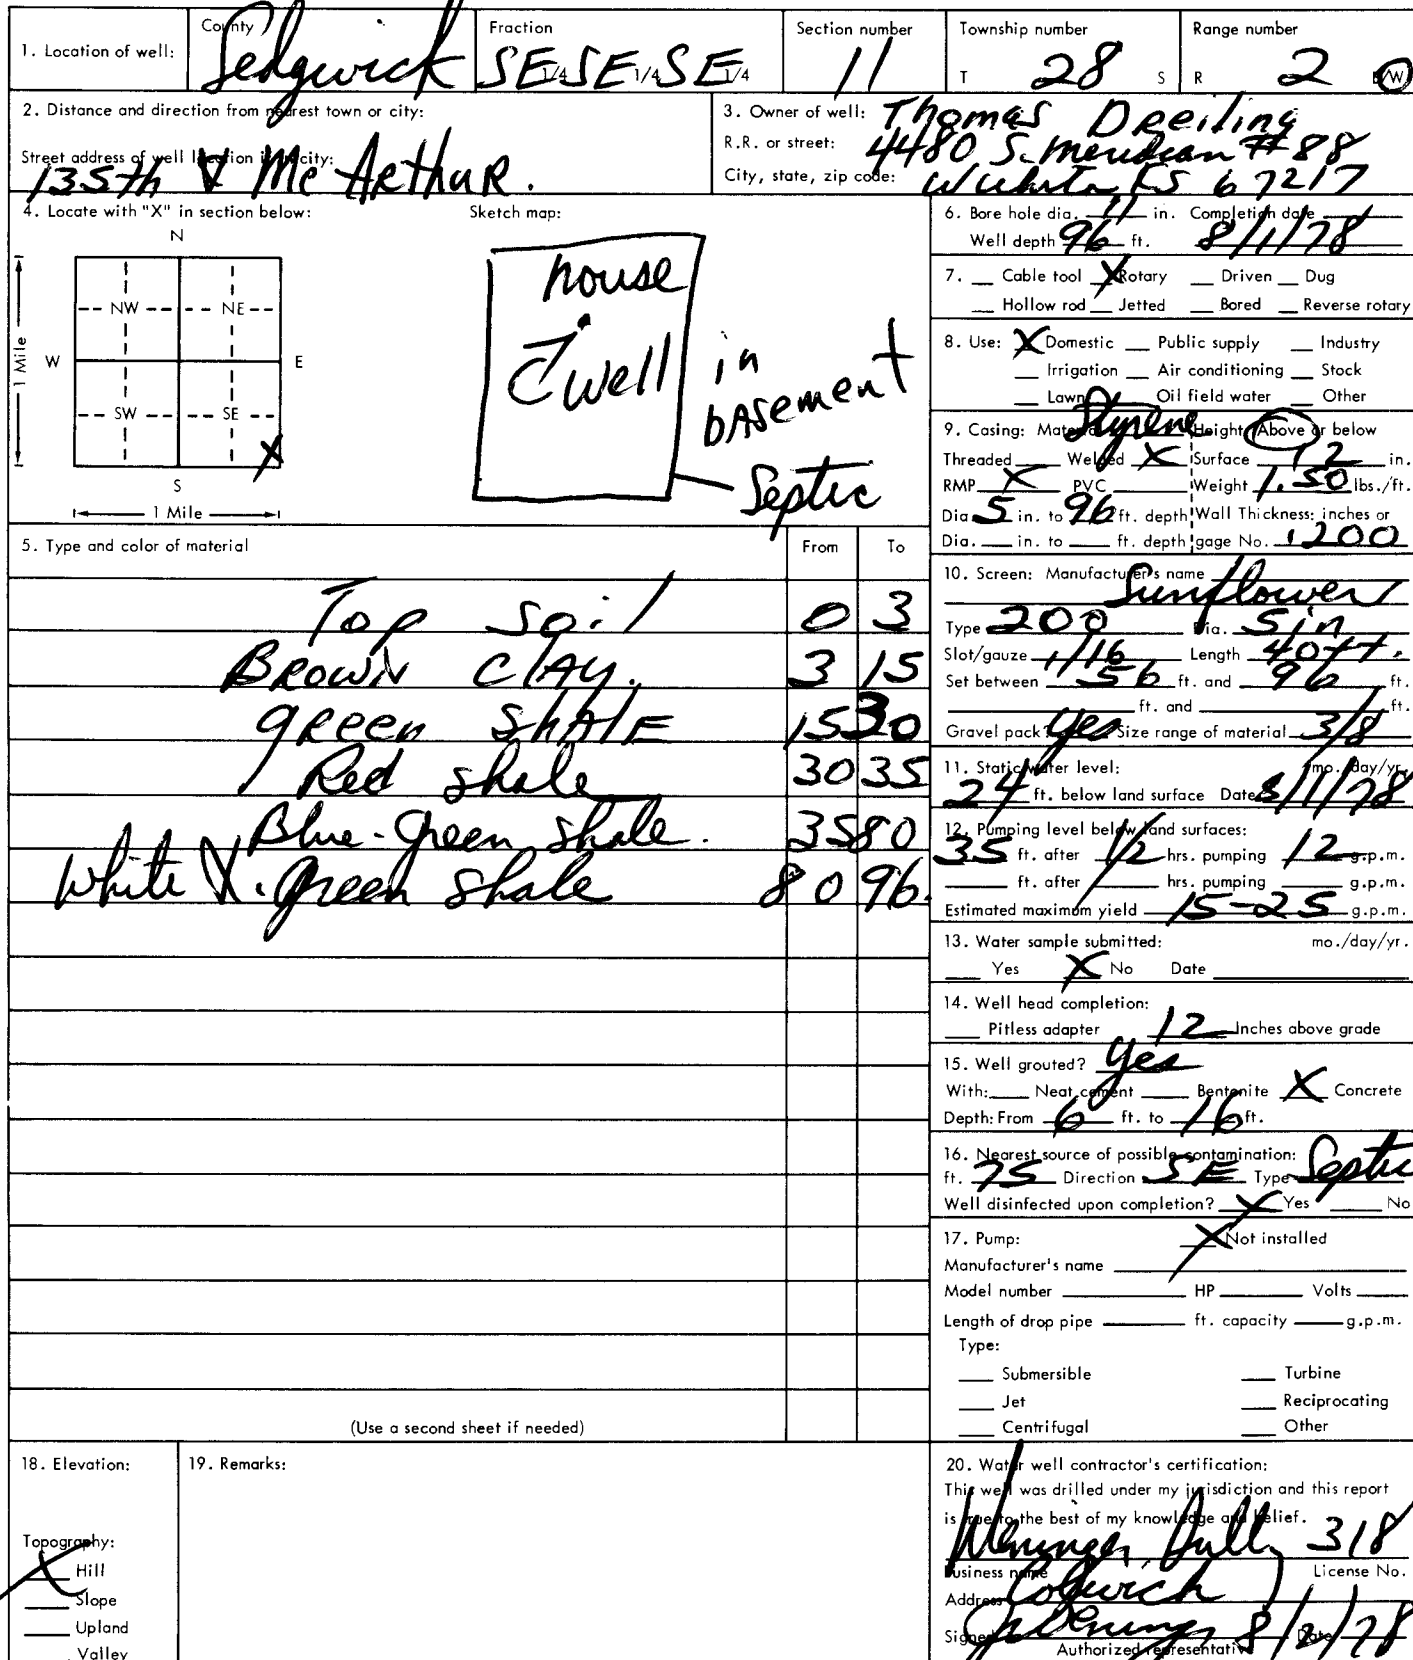 1. Location of well: County Sedgwick Fraction SE 1/4 SE 1/4 SE 1/4 Section number 11 Township number T 28 S Range number R 2 E/W
2. Distance and direction from nearest town or city:
Street address of well location if in city: 135th & Mc Arthur.
3. Owner of well: Thomas Dreiling
R.R. or street: 4480 S. Meridian #88
City, state, zip code: Wichita KS 67217
4. Locate with "X" in section below:
Sketch map:
N
NW NE
W E
SW SE
X
S
1 Mile
1 Mile
house
well
in
basement
Septic
5. Type and color of material From To
Top Soil 0 3
Brown Clay. 3 15
green shale 15 30
Red shale 30 35
Blue-Green shale. 35 80
White & Green shale 80 96.
(Use a second sheet if needed)
6. Bore hole dia. 11 in. Completion date
Well depth 96 ft. 8/1/78
7. __ Cable tool X Rotary __ Driven __ Dug
__ Hollow rod __ Jetted __ Bored __ Reverse rotary
8. Use: X Domestic __ Public supply __ Industry
__ Irrigation __ Air conditioning __ Stock
__ Lawn __ Oil field water __ Other
9. Casing: Material Styrene Height: Above or below
Threaded __ Welded X Surface 12 in.
RMP X PVC __ Weight 1.50 lbs./ft.
Dia. 5 in. to 96 ft. depth Wall Thickness: inches or
Dia. __ in. to __ ft. depth gage No. .200
10. Screen: Manufacturer's name
Sunflower
Type 200 Dia. 5 in
Slot/gauze 1/16 Length 40 ft.
Set between 56 ft. and 96 ft.
__ ft. and __ ft.
Gravel pack? yes Size range of material 3/8
11. Static water level: mo./day/yr.
24 ft. below land surface Date 8/1/78
12. Pumping level below land surfaces:
35 ft. after 1/2 hrs. pumping 12 g.p.m.
__ ft. after __ hrs. pumping __ g.p.m.
Estimated maximum yield 15-25 g.p.m.
13. Water sample submitted: mo./day/yr.
__ Yes X No Date
14. Well head completion:
__ Pitless adapter 12 Inches above grade
15. Well grouted? yes
With: __ Neat cement __ Bentonite X Concrete
Depth: From 6 ft. to 16 ft.
16. Nearest source of possible contamination:
ft. 75 Direction SE Type Septic
Well disinfected upon completion? X Yes __ No
17. Pump: X Not installed
Manufacturer's name
Model number __ HP __ Volts __
Length of drop pipe __ ft. capacity __ g.p.m.
Type:
__ Submersible __ Turbine
__ Jet __ Reciprocating
__ Centrifugal __ Other
18. Elevation:
Topography:
X Hill
__ Slope
__ Upland
Valley
19. Remarks:
20. Water well contractor's certification:
This well was drilled under my jurisdiction and this report
is true to the best of my knowledge and belief.
Weninger 318
Business name License No.
Address Colwich
Signed Weninger 8/2/78 Date
Authorized representative